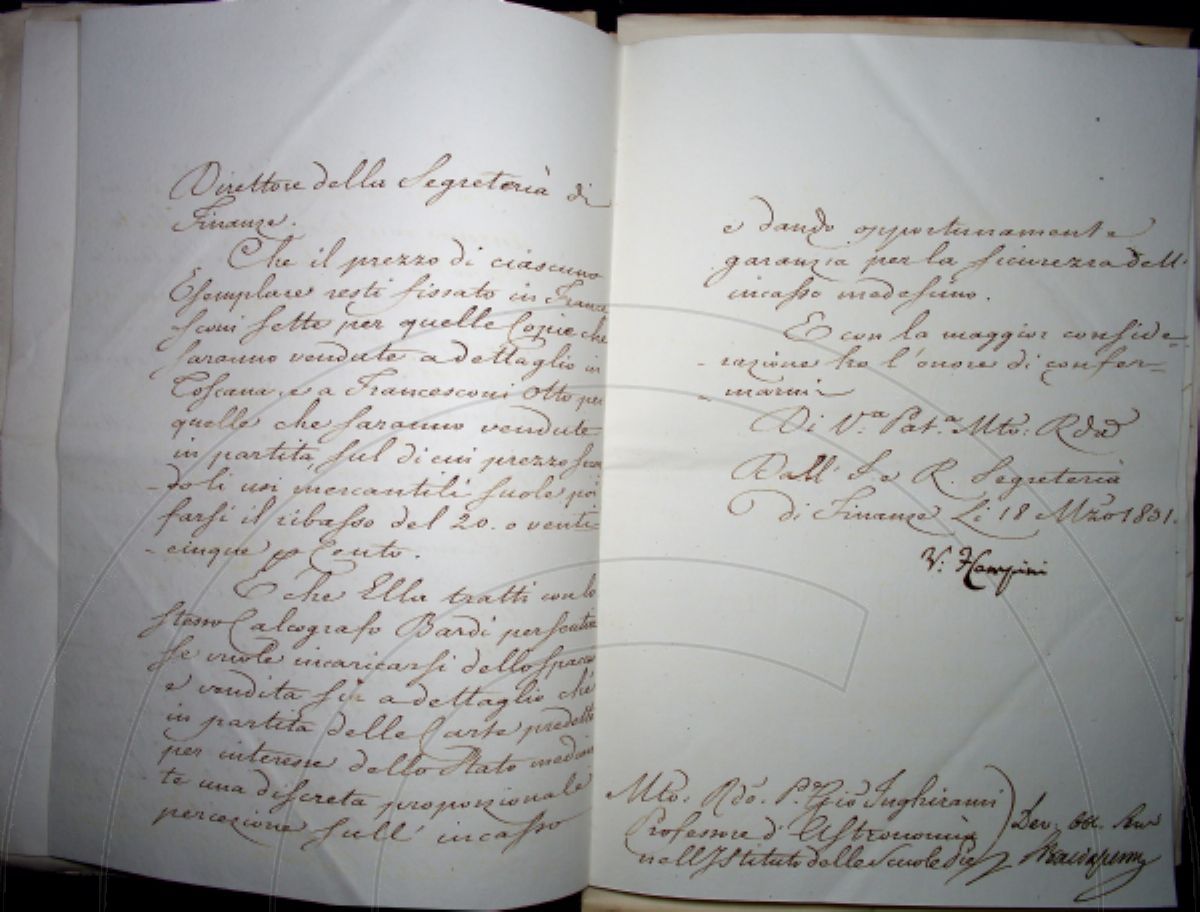 Direttore della Segreteria di
Finanze.
Che il prezzo di ciascuno
Esemplare resti fissato in France
sconi sette per quelle Copie che
saranno vendute a dettaglio in
Toscana, e a Francesconi Otto per
quelle che saranno vendute
in partita, sul di cui prezzo secon
do li usi mercantili suole poi
farsi il ribasso del 20. o venti
cinque p Cento.
E che Ella tratti con lo
stesso Calcografo Bardi per sentire
se vuole incaricarsi dello spaccio
e vendita sì a dettaglio che
in partita delle Carte predette
per interesse dello Stato median
te una discreta proporzionale
percezione sull' incasso
e dando opportunamente
garanzia per la sicurezza dell'
incasso medesimo.
E con la maggior conside-
razione ho l'onore di confer-
marmi
Di V.ª Pat.ª Mto: Rda
Dall' I. e R. Segreteria
di Finanze Li 18 Mzo 1831.
Mto. Rdo. P. Gio Inghirami
Professore d' Astronomia
nell' Istituto delle Scuole Pie
Dev. Obb. Serv